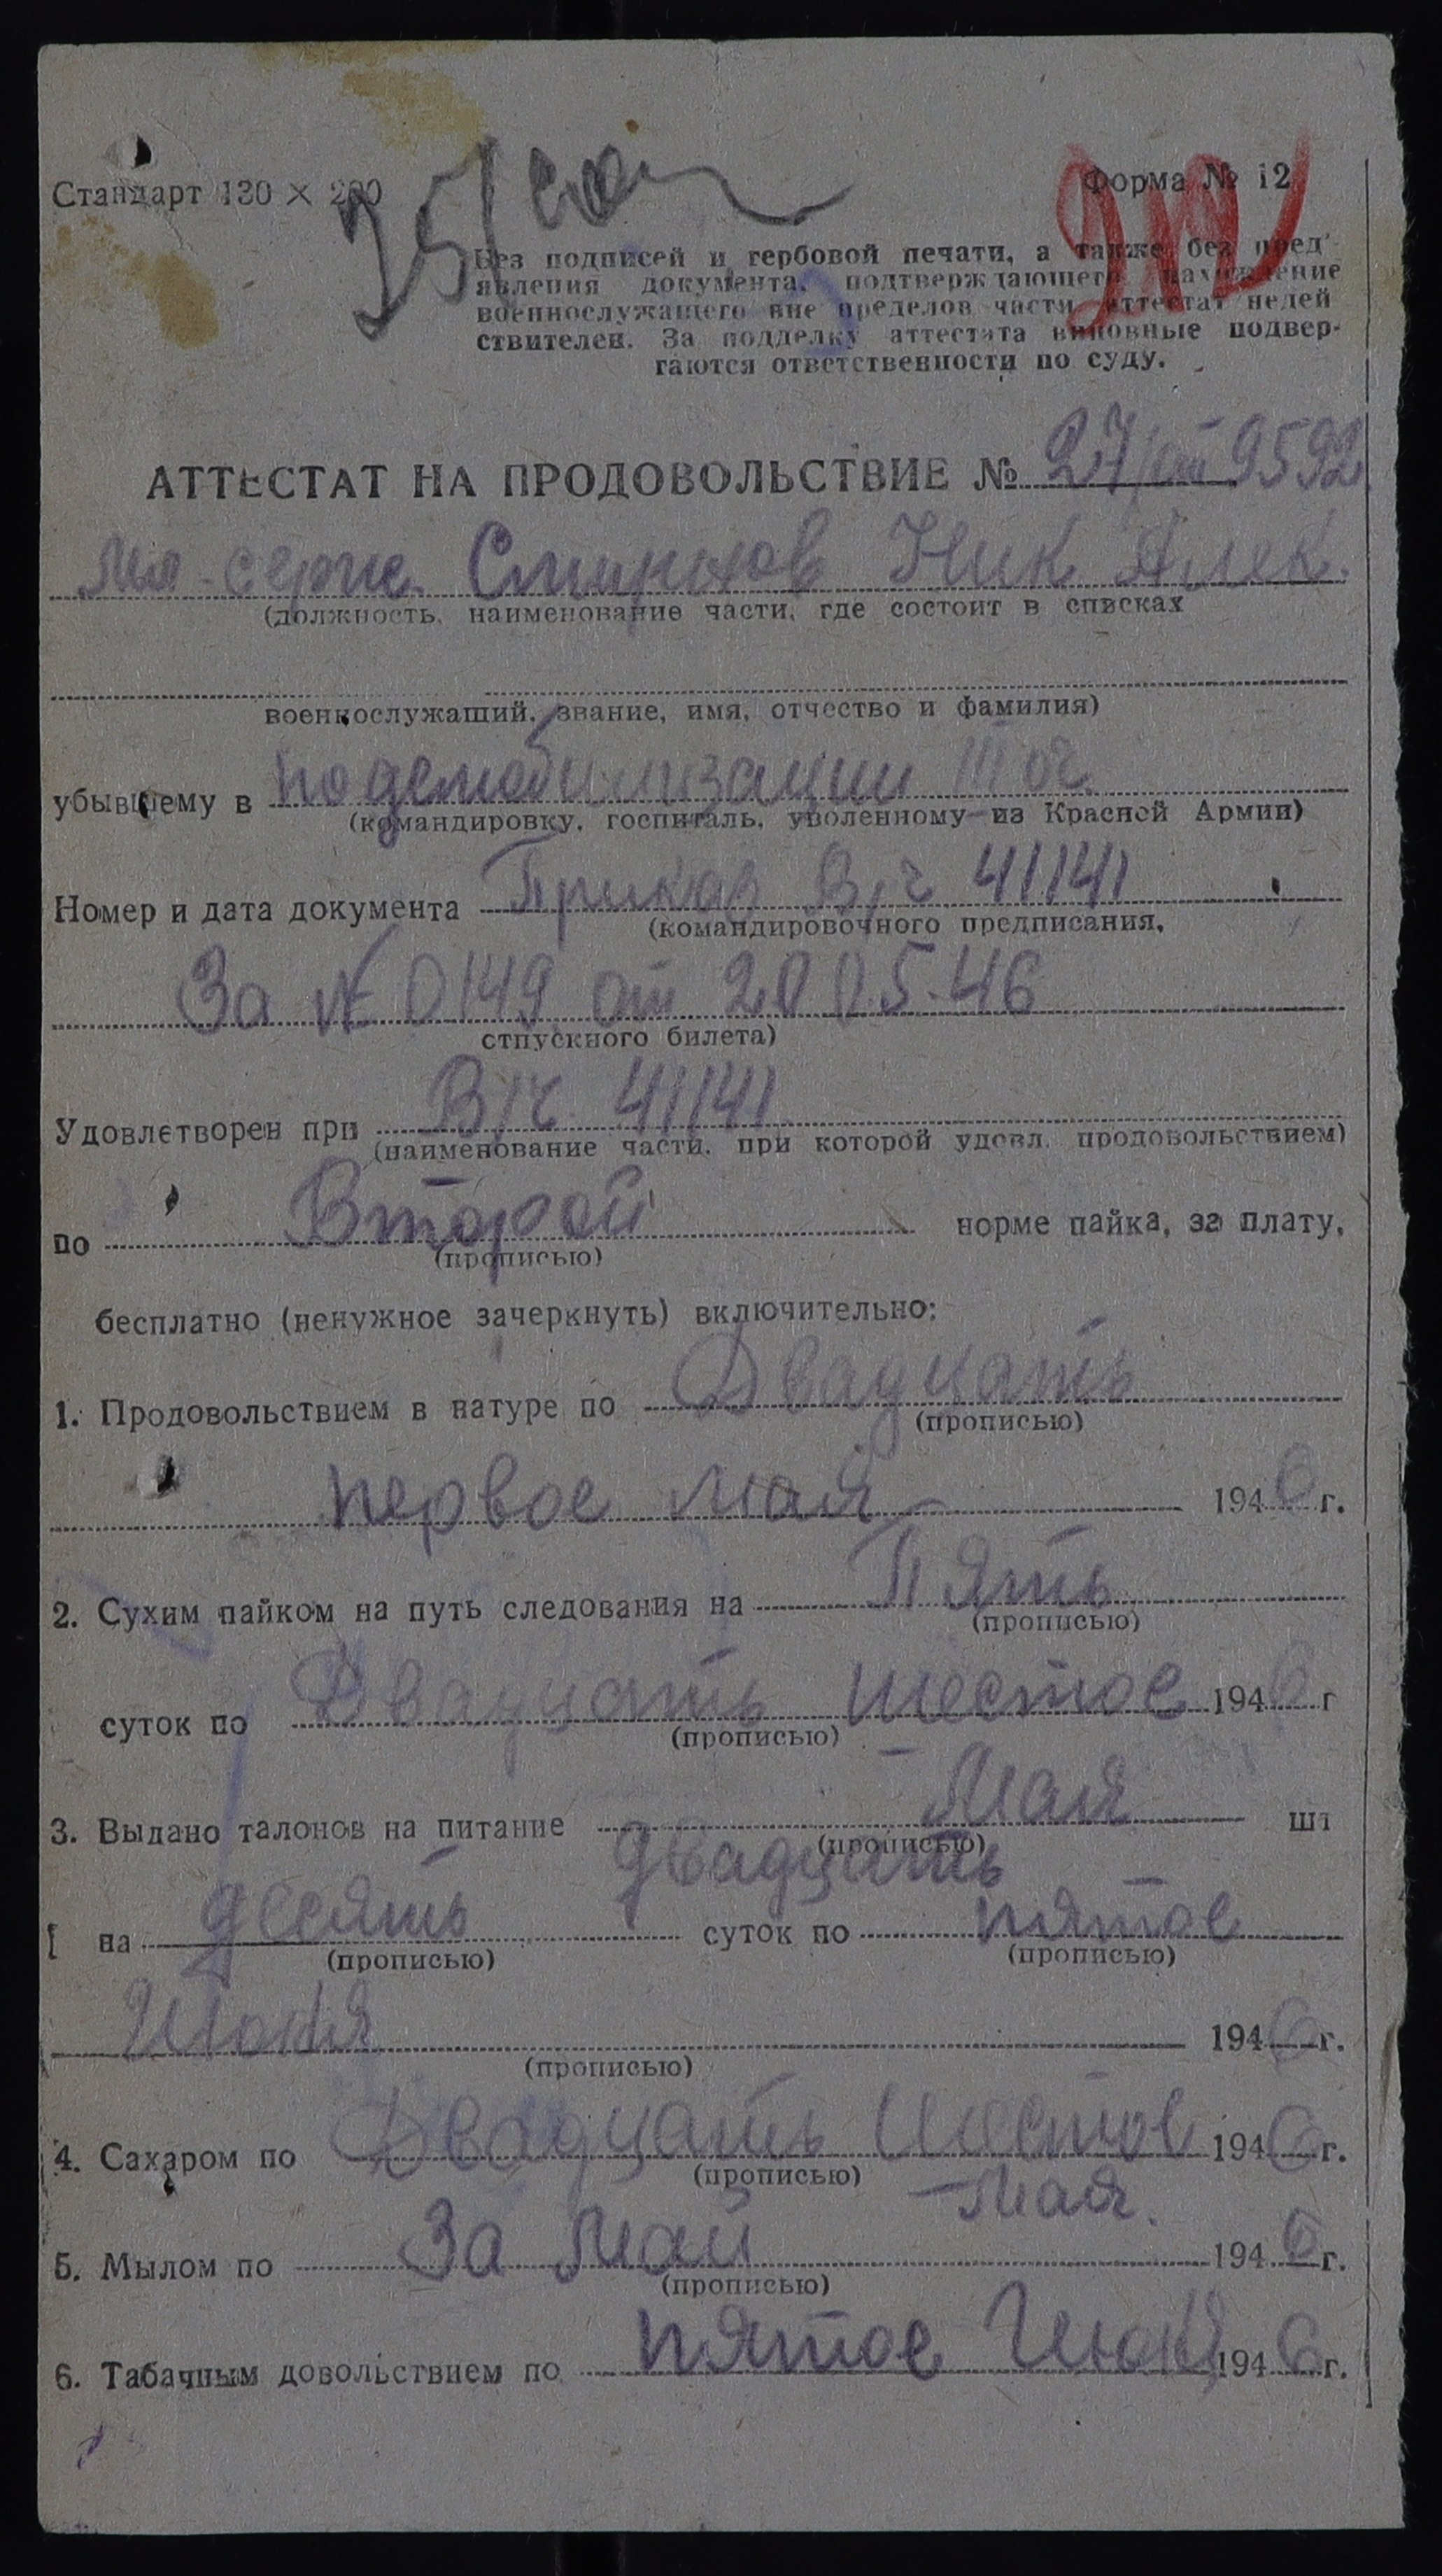 Стандарт 130 × 200
Форма № 12
Без подписей и гербовой печати, а также без пред'-
явления документа, подтверждающего нахождение
военнослужащего вне пределов части, аттестат недей
ствителен. За подделку аттестата виновные подвер-
гаются ответственности по суду.
АТТЕСТАТ НА ПРОДОВОЛЬСТВИЕ № 27/от 9592
Мл-серж. Смирнов Ник Алек.
(должность, наименование части, где состоит в списках
военнослужащий, звание, имя, отчество и фамилия)
убывшему в по демобилизации III оч.
(командировку, госпиталь, уволенному из Красной Армии)
Номер и дата документа Приказ В/ч 41141
(командировочного предписания,
За № 0149 от 20.05.46
отпускного билета)
Удовлетворен при В/ч 41141
(наименование части, при которой удовл. продовольствием)
по Второй норме пайка, за плату,
(прописью)
бесплатно (ненужное зачеркнуть) включительно:
1. Продовольствием в натуре по Двадцать
(прописью)
первое мая 1946 г.
2. Сухим пайком на путь следования на Пять
(прописью)
суток по Двадцать шестое 1946 г
(прописью)
Мая
3. Выдано талонов на питание шт
(прописью)
двадцать
на десять суток по пятое
(прописью) (прописью)
Июня 1946 г.
(прописью)
4. Сахаром по Двадцать Шестое 1946 г.
(прописью)
Мая.
5. Мылом по За Май 1946 г.
(прописью)
6. Табачным довольствием по пятое Июня 1946 г.